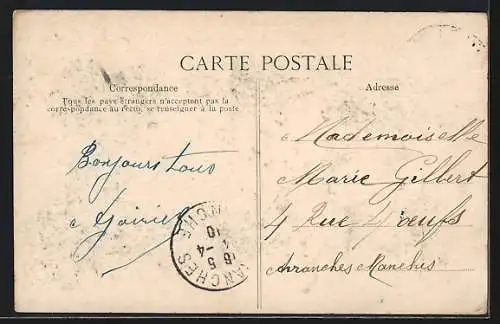 CARTE POSTALE
Correspondance
Tous les pays étrangers n'acceptent pas la
correspondance au recto, se renseigner à la poste
Adresse
Bonjours tous
Mademoiselle
Marie Gillert
4 Rue 4 œufs
Avranches Manches
ANCHES
MANCHE
5 -4
10